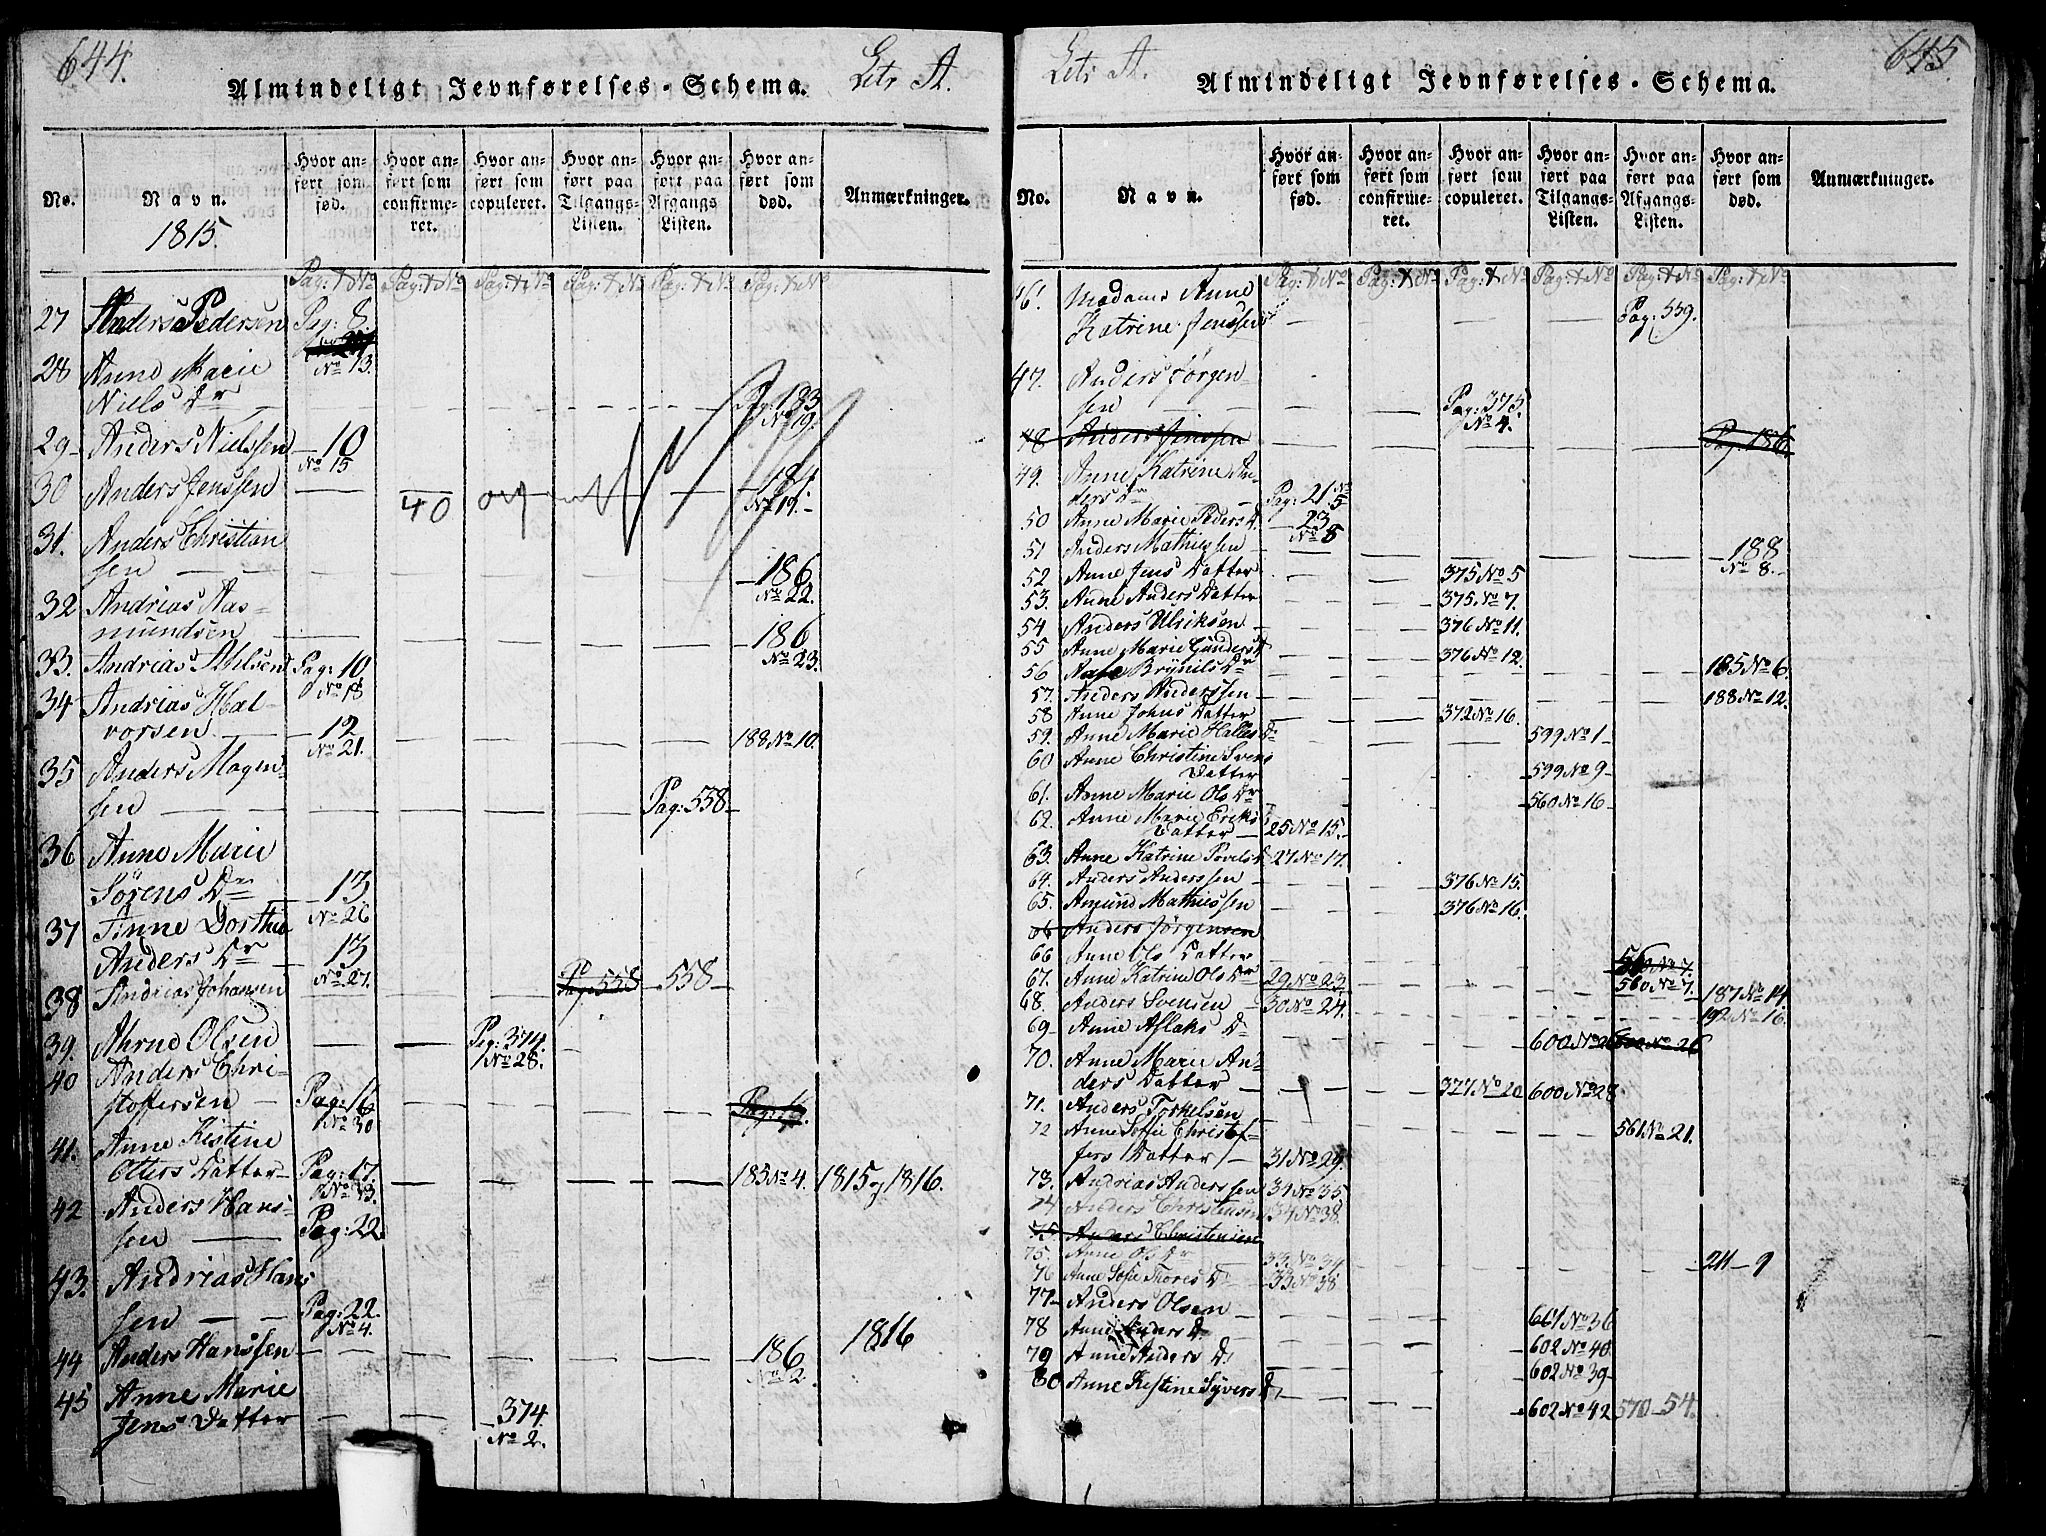 644.
Almindeligt Jevnførelses-Schema.
Letr A.
No.
Navn.
1815.
Hvor an-
ført som
fød.
Hvor an-
ført som
confirme-
ret.
Hvor an-
ført som
copuleret.
Hvor an-
ført paa
Tilgangs-
Listen.
Hvor an-
ført paa
Afgangs
Listen.
Hvor an-
ført som
død.
Anmærkninger.
Pag: & No Pag: & No Pag: & No Pag: & No Pag: & No Pag: & No
27 Anders Pedersen Pag: 8.
28 Anne Marie No 13.
Niels Dr — Pag: 183
No 19.
29 Anders Nielssen — 10
No 15
30 Anders Jenssen — 40 184
No 19.
31. Anders Christian
sen — — 186
No 22.
32 Andrias Aas-
mundsen — 186
No 23.
33. Andrias Nielsen Pag: 10
No 18
34 Andrias Hal-
vorsen — 12 188 No 10.
No 21.
35 Anders Mogen-
sen — Pag: 558
36 Anne Marie
Sörens Dr — 13
No 26
37 Anne Dorthe
Anders Dr — 13
No 27.
38 Andrias Johansen — Pag: 558 — 558
39. Ahrne Olsen Pag: 374.
No 28.
40 Anders Chri-
stoffersen — Pag: 16
No 30
41. Anne Kistine
Otters Datter — Pag: 17. 185 No 4. 1815 og 1816.
42 Anders Hans-
sen — Pag: 22
43. Andrias Hans
sen — — Pag: 22.
No 4.
44 Anders Hanssen — 186 1816
No 2.
45 Anne Marie
Jens Datter — 374.
No 2.
645.
Letr A.
Almindeligt Jevnførelses-Schema.
No.
Navn.
Hvor an-
ført som
fød.
Hvor an-
ført som
confirme-
ret.
Hvor an-
ført som
copuleret.
Hvor an-
ført paa
Tilgangs
Listen.
Hvor an-
ført paa
Afgangs-
Listen.
Hvor an-
ført som
død.
Anmærkninger.
Pag: & No Pag: & No Pag: & No Pag: & No Pag: & No Pag: & No
46. Madame Anne
Katrine Jenssen — Pag: 559.
47. Anders Jörgen-
sen — Pag: 375.
No 4.
48 Anders Jenssen — Pag: 186
49. Anne Katrine An-
ders Dr — Pag: 21 No 5
50 Anne Marie Peders D. — 23
No 8
51 Anders Mathiessen — 188
No 8.
52 Anne Jens Datter — 375 No 5
53. Anne Anders Datter 375. No 7.
54. Anders Ulriksen — 376 No 11.
55 Anne Marie Gunders D 376 No 12.
56 Aase Brynils Dr 185 No 6.
57. Anders Anderssen — 188 No 12.
58 Anne Johns Datter 372 No 16.
59. Anne Marie Halles D 599 No 1
60 Anne Christine Svens
Datter 599 No 9
61. Anne Marie Ols Dr 560 No 16
62. Anne Marie Eriks
Datter — 25 No 15.
63. Anne Katrine Povels D 27 No 17.
64. Anders Anderssen — 376 No 15.
65. Amund Mathiessen 376 No 16.
66 Anders Jörgensen
66 Anne Ols Datter 560 No 7.
67. Anne Katrine Ols Dr 29 No 23. 560 No 7. 187 No 14
68. Anders Svensen — 30 No 24. 192 No 16.
69 Anne Aslaks D 600 No 26
70. Anne Marie An-
ders Datter — 377. No 20 600 No 28
71. Anders Torkelsen
72 Anne Sofie Christof- 561 No 21.
fers Datter — 31 No 29.
73. Andrias Anderssen 34 No 35.
74 Anders Christensen 34 No 38.
75 Anders Christensen
75. Anne Ols Dr 33. No 34 211 — 9
76 Anne Sofie Thores D 33 No 38
77 Anders Olsen — 661 No 36
78 Anne Anders D 602 No 40
79 Anne Anders D 602 No 39
80 Anne Kistine Syvers D 602 No 42 570 — 54.